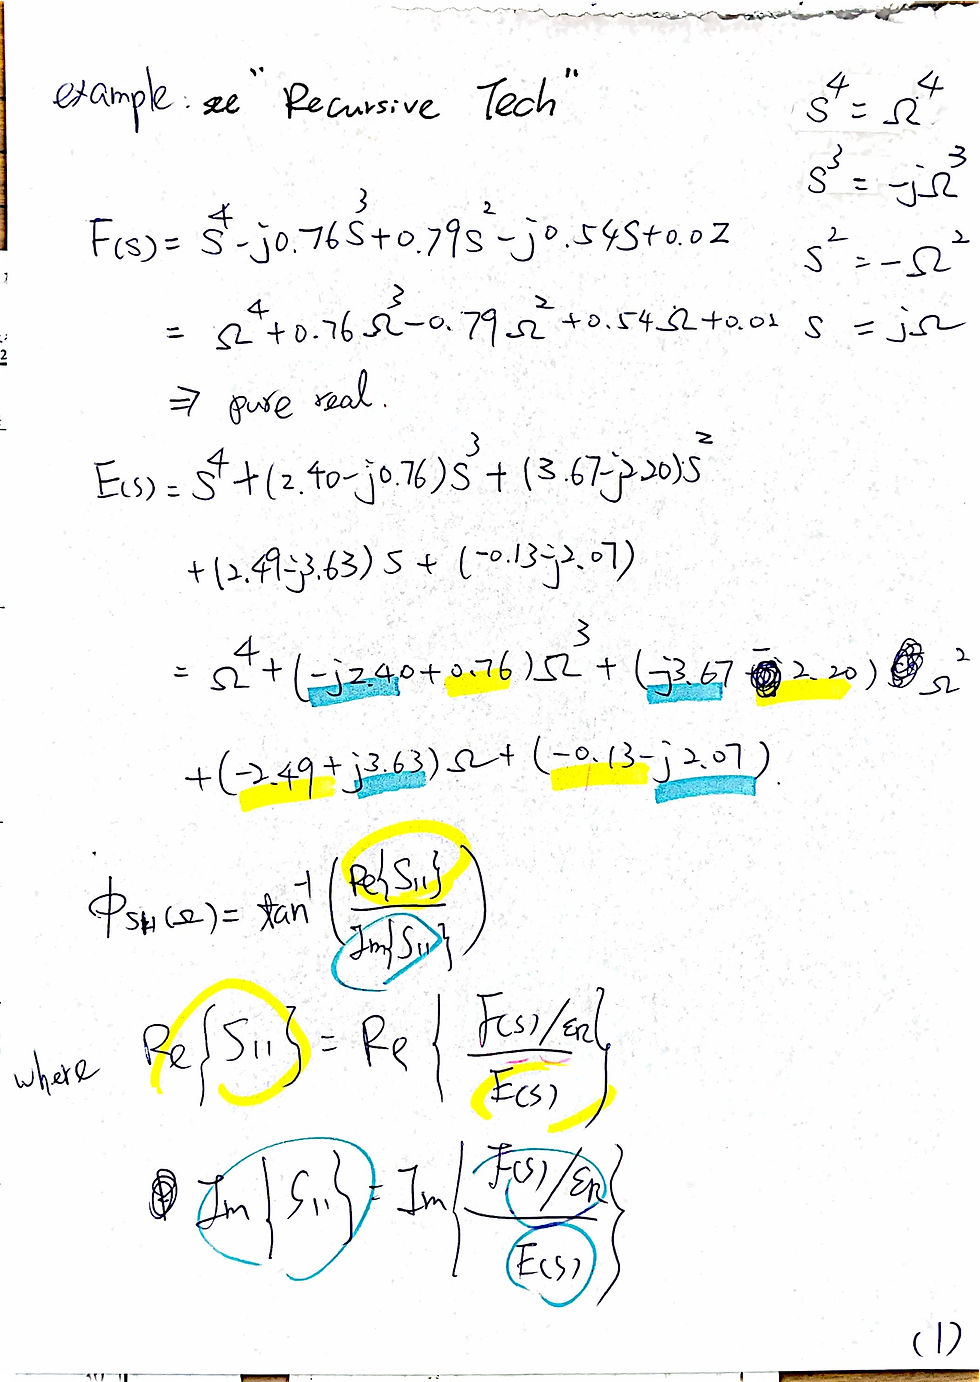 example: see "Recursive Tech"
S^4 = Ω^4
S^3 = -jΩ^3
S^2 = -Ω^2
S = jΩ
F(S) = S^4 - j0.76S^3 + 0.79S^2 - j0.54S + 0.02
= Ω^4 + 0.76Ω^3 - 0.79Ω^2 + 0.54Ω + 0.02
⇒ pure real.
E(S) = S^4 + (2.40 - j0.76)S^3 + (3.67 - j2.20)S^2
+ (2.49 - j3.63)S + (-0.13 - j2.07)
= Ω^4 + (-j2.40 + 0.76)Ω^3 + (-j3.67 - 2.20)Ω^2
+ (-2.49 + j3.63)Ω + (-0.13 - j2.07).
ϕ_S11(Ω) = tan^-1 (Re{S11} / Im{S11})
where Re{S11} = Re { F(S)/εR / E(S) }
Im{S11} = Im { F(S)/εR / E(S) }
(1)